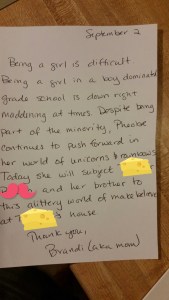 September 2
Being a girl is difficult
Being a girl in a boy dominated
grade school is down right
maddening at times. Despite being
part of the minority, Pheobe
continues to push forward in
her world of unicorns & rainbows
Today she will subject
D n, and her brother to
this glittery world of make believe
at T 's house
Thank you,
Brandi (aka mom)